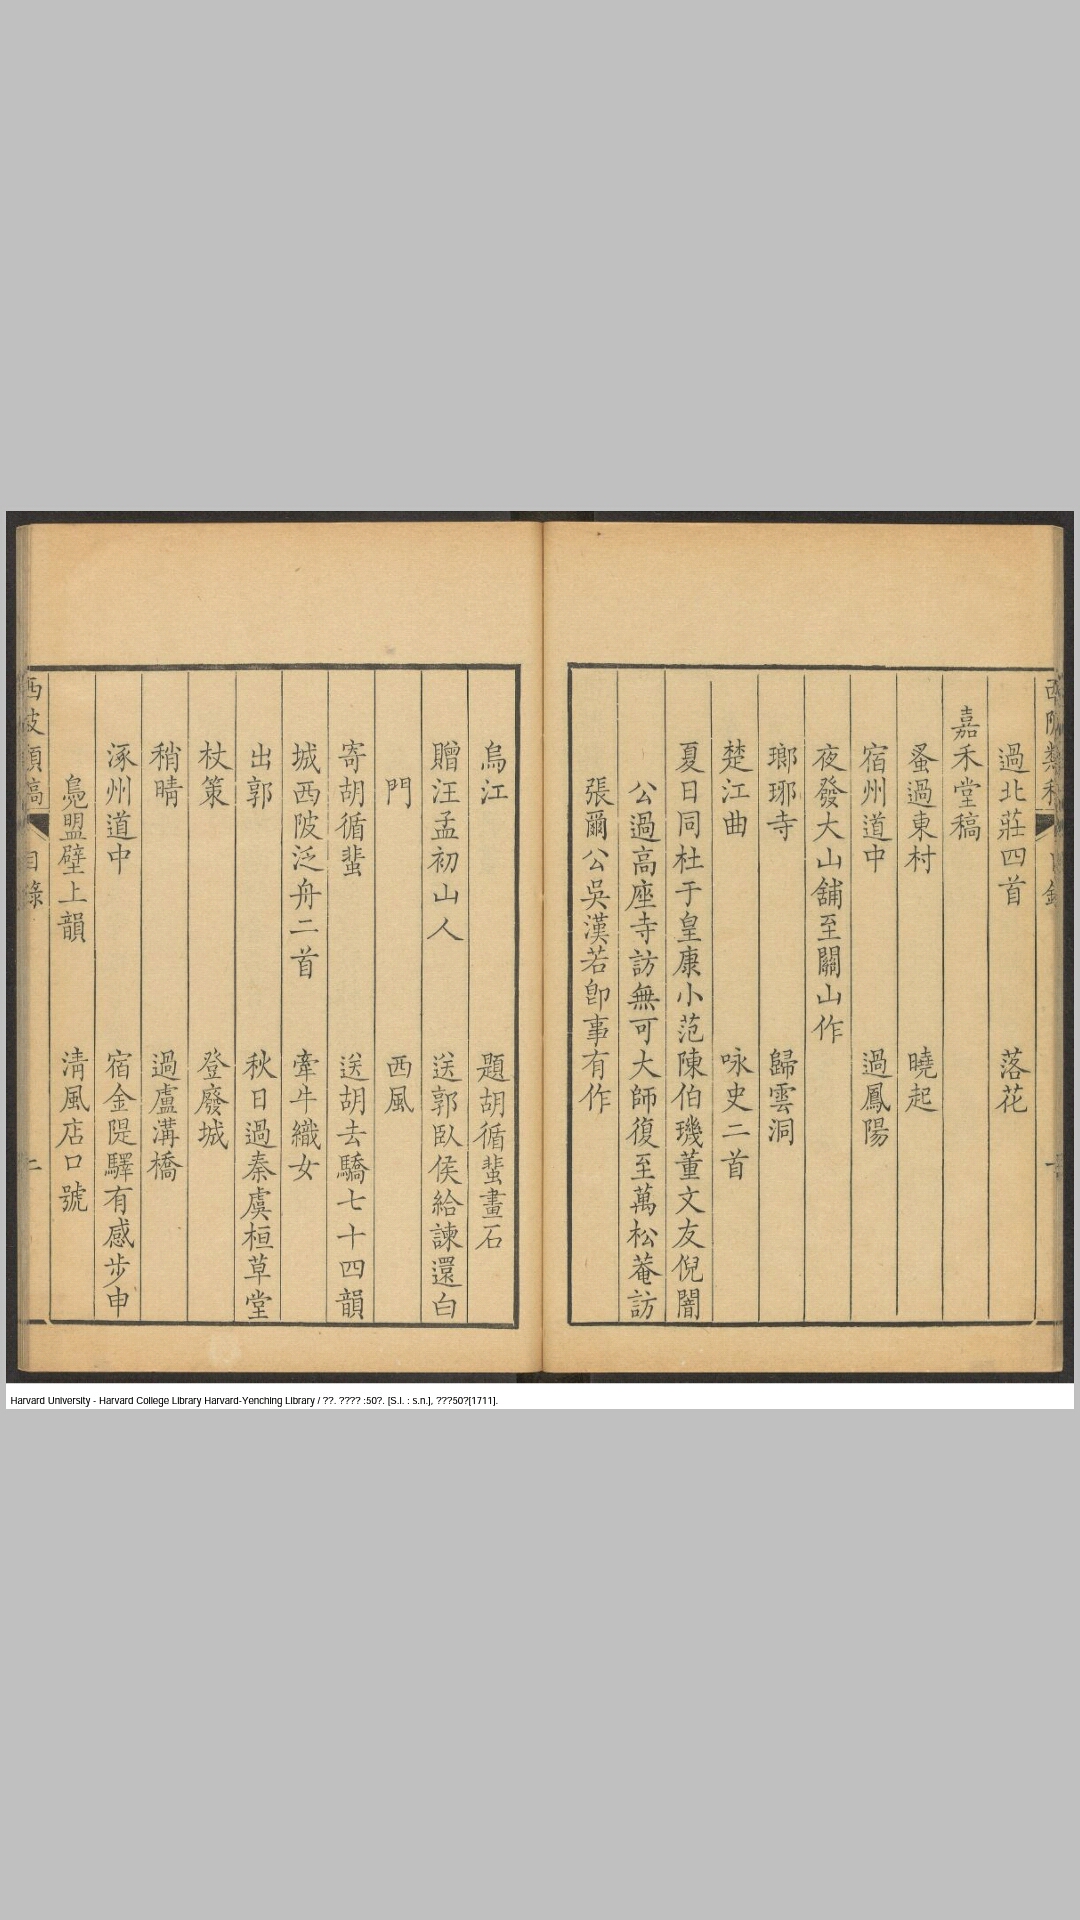 過北莊四首　落花
嘉禾堂稿
蚤過東村　曉起
宿州道中　過鳳陽
夜發大山舖至關山作
瑯琊寺　歸雲洞
楚江曲　咏史二首
夏日同杜于皇康小范陳伯璣董文友倪闇
公過高座寺訪無可大師復至萬松菴訪
張爾公吳漢若卽事有作
烏江　題胡循蜚畫石
贈汪孟初山人　送郭臥侯給諫還白
門　西風
寄胡循蜚　送胡去驕七十四韻
城西陂泛舟二首　牽牛織女
出郭　秋日過秦虞桓草堂
杖策　登廢城
稍晴　過盧溝橋
涿州道中　宿金隄驛有感步申
鳧盟壁上韻　清風店口號
西陂類稿　目錄　二
Harvard University - Harvard College Library Harvard-Yenching Library / ??. ???? :50?. [S.l. : s.n.], ???50?[1711].